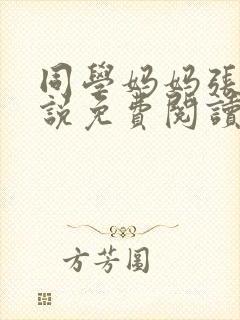 同學妈妈張
說免費閱讀
方芳圓